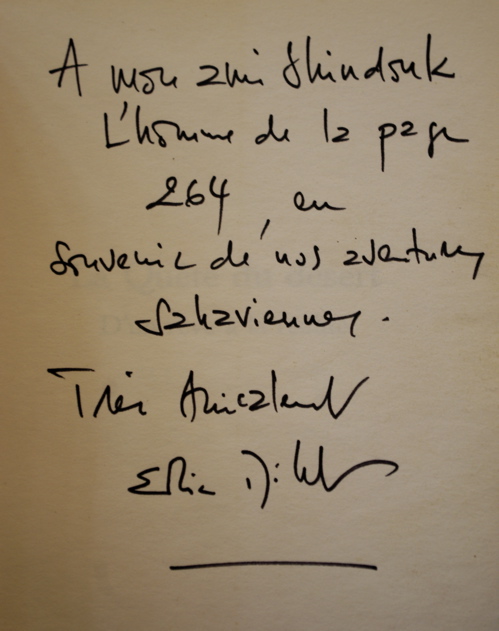 A mon ami Shindouk
L'homme de la page
264, en
souvenir de nos aventures
sahariennes.
Très Amicalement
Eric